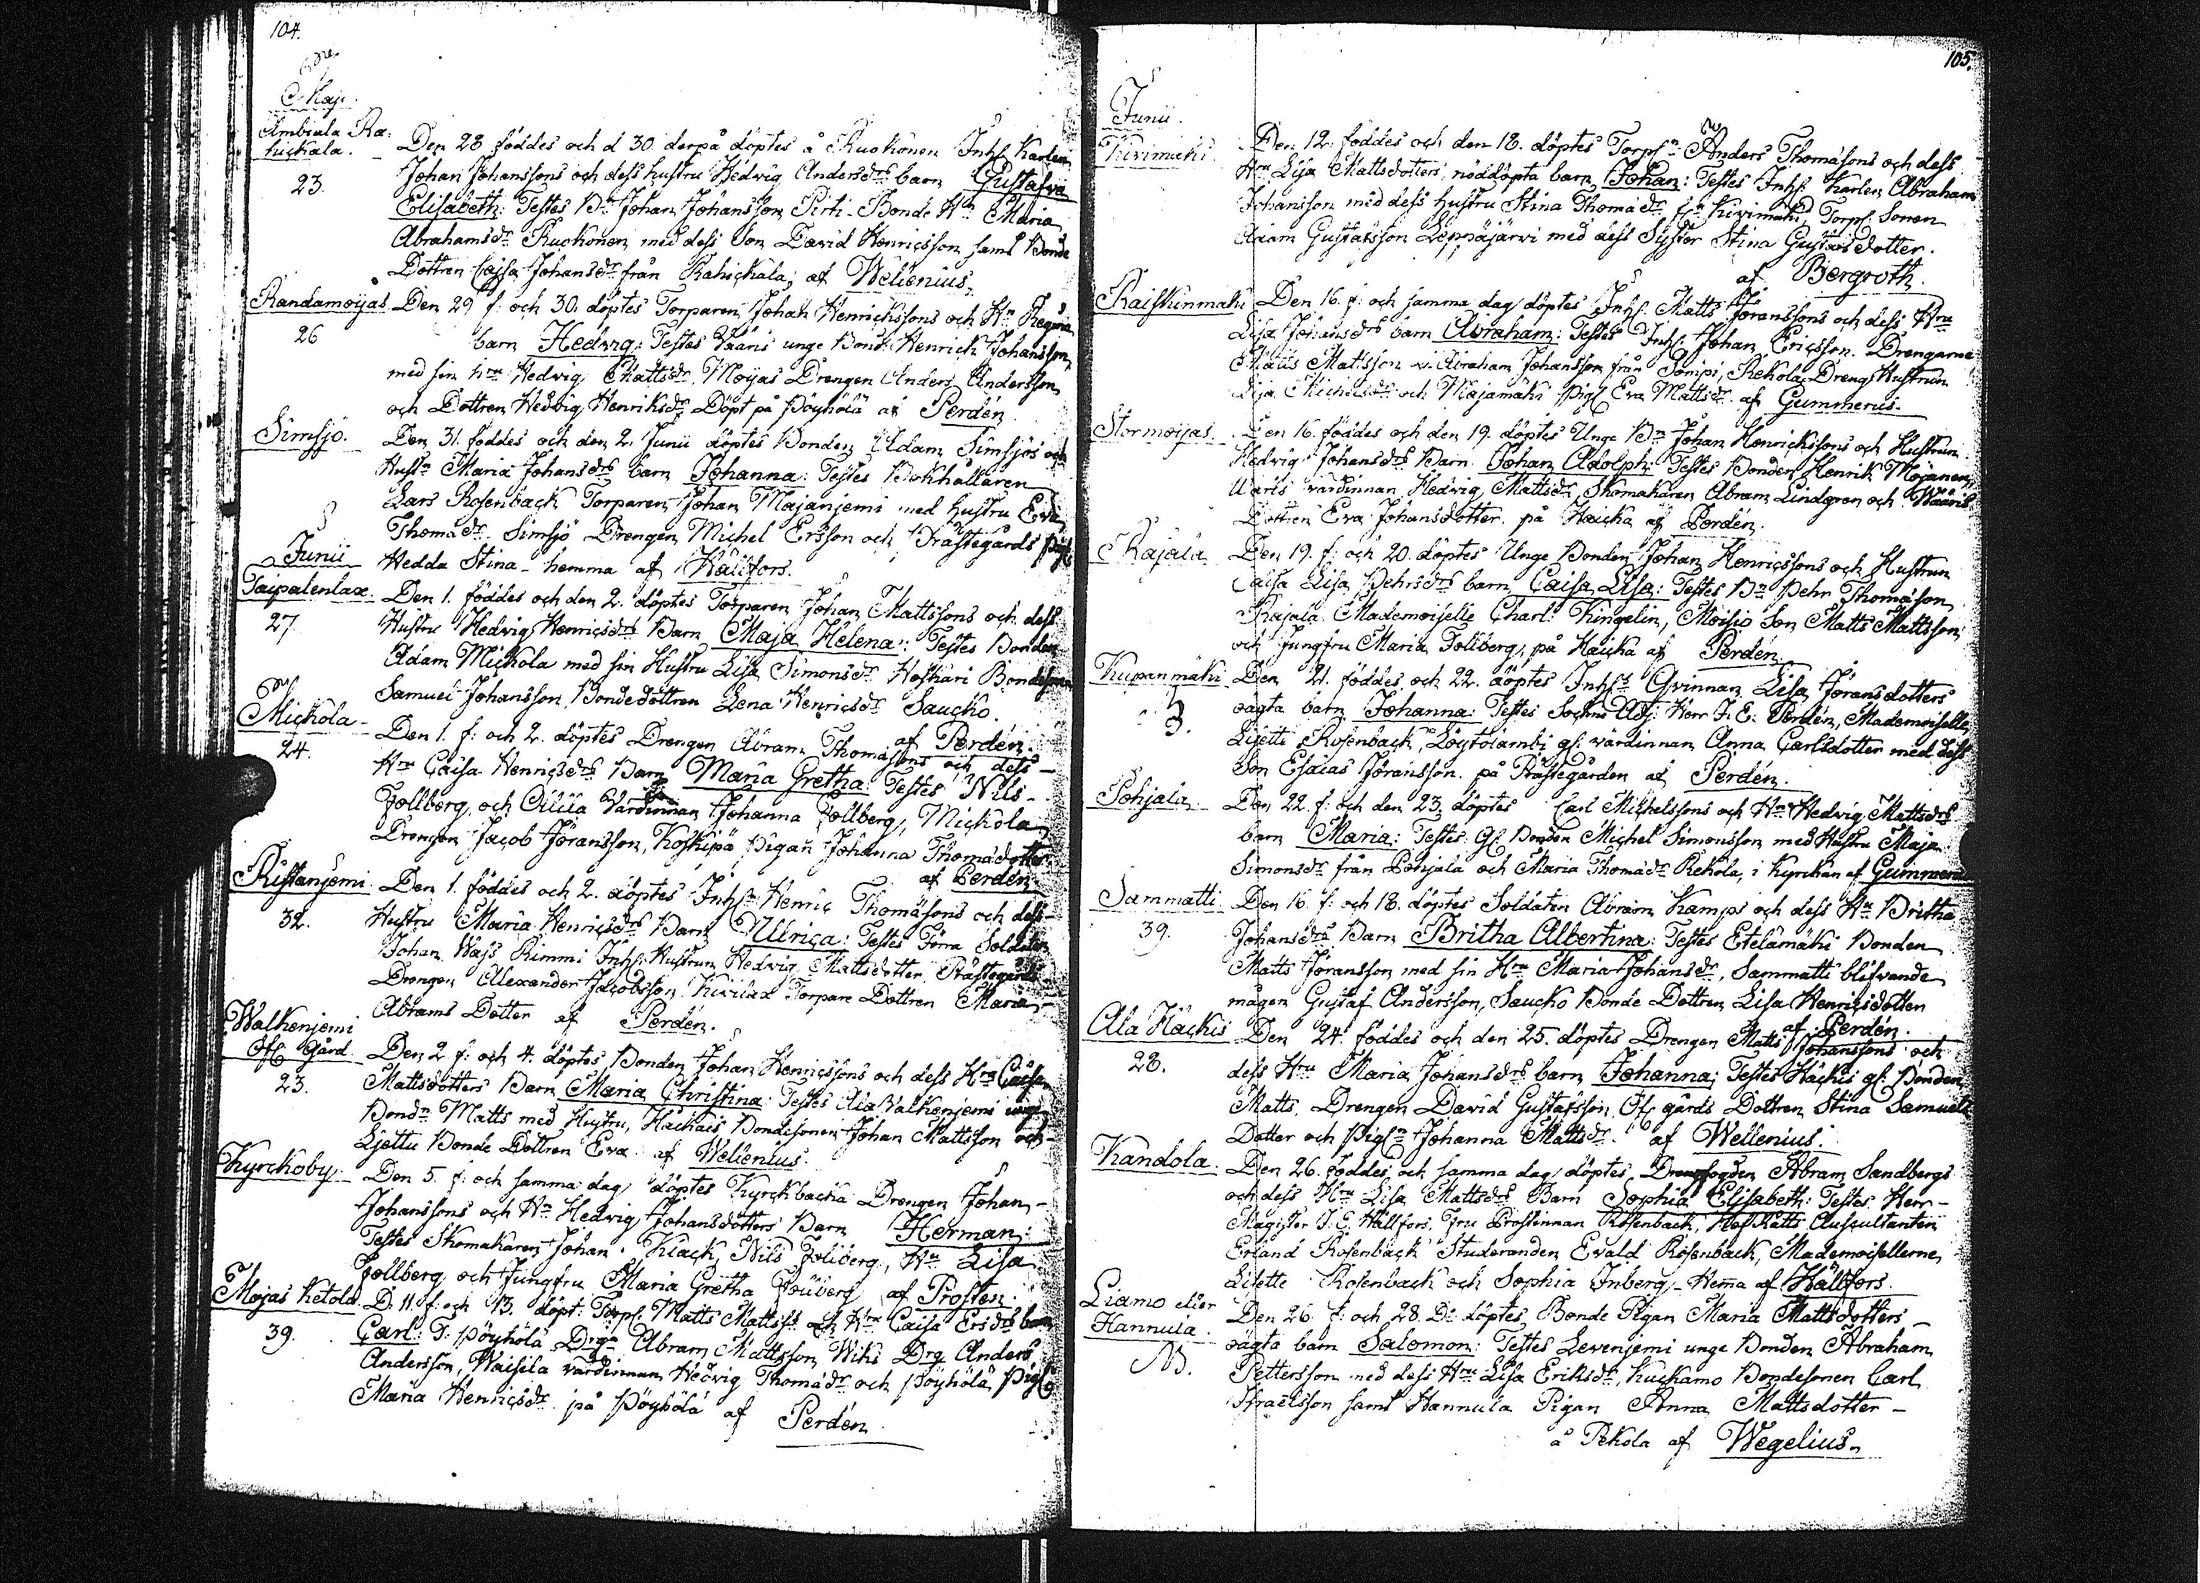 104.
Maji
Ambiala Ra:
hickala.
23.
Den 28 föddes och d 30. derpå döptes å Ruokonen Inhs. Karlen
Johan Johanssons och dess hustru Hedvig Andersdrs barn Gustafva
Elisabeth: Testes Bn Johan Johansson Pirti-Bonde Hn Maria
Abrahamsdr Ruokonen med dess Son David Henricsson samt Bonde
Dottren Cajsa Johansdr från Rahickala; af Welienius.
Randamoijas
26
Den 29 f: och 30. döptes Torparen Johan Henrichssons och Hn Regina
barn Hedvig: Testes Vääris unge Bond. Henrich Johansson,
med sin hru Hedvig Mattsdr, Moijas Drengen Anders Andersson
och Dottren Hedvig Henriksdr Döpt på Pöyhölä af Perdén
Simsjö.
Den 31. föddes och den 2. Junii döptes Bonden Adam Simsjös och
Hustn Maria Johansdrs barn Johanna: Testes Bokhållaren
Lars Rosenback, Torparen Johan Majanjemi med hustru Eva
Thomædr. Simsjö Drengen Michel Ersson och Prästegårds Pig.
Hedda Stina - hemma af Hällfors.
Junii
Taipalenlax.
27.
Den 1. föddes och den 2. döptes Torparen Johan Mattssons och dess
Hustru Hedvig Henricsdrs Barn Maja Helena: Testes Bonden
Adam Mickola med sin Hustru Lisa Simonsdr Hoskari Bondesonen
Samuel Johansson, Bondedottren Lena Henricsdr Saucko.
af Perdén.
Mickola
24.
Den 1. f: och 2. döptes Drengen Abram Thomæsons och dess
Hru Caisa Henricsdrs Barn Maria Gretha: Testes Nils
Follberg, och Ollila Värdinnan Johanna Follberg, Mickola
Drengen Jacob Jöransson, Koskipä Pigan Johanna Thomædotter
af Perdén.
Ristanjemi
32.
Den 1. föddes och 2. döptes Inhsn Henric Thomæsons och dess
Hustru Maria Henricsdrs Barn Ulrica: Testes Förra Soldaten
Johan Wass Rimmi Inhs. Hustrun Hedvig Mattsdotter Prästegårds
Drengen Alexander Jacobsson Kivilax Torpare Dottren Maria
Abrams Dotter af Perdén.
Walkenjemi
Ofv Gård
23.
Den 2 f: och 4. döptes Bonden Johan Henricssons och dess Hru Caisa
Mattsdotters Barn Maria Christina: Testes Ala Valkenjemi unge
Bondn Matts med Hustru, Häckäis Bondesonen Johan Mattsson och
Ljettu Bonde Dottren Eva af Welienius.
Kyrckoby
Den 5. f: och samma dag döptes Kyrckbacka Drengen Johan
Johanssons och Hn Hedvig Johansdotters Barn Herman:
Testes Skomakaren Johan Klack, Nils Follberg, Hn Lisa
Follberg och Jungfru Maria Gretha Follberg af Prosten.
Mojas Ketola
39.
D. 11. f: och 13. döpt: Torp. Matts Mattss. och Hru Caisa Ersdrs barn
Carl: T: Pöyhölä Drgn Abram Mattsson Wiks Drg Anders
Andersson, Waisila värdinnan Hedvig Thomædr och Pöyhölä Pig.
Maria Henricsdr på Pöyhölä af Perdén
105.
Junii.
Kivimäki
Den 12. föddes och den 18. döptes Torpn Anders Thomæsons och dess
Hru Lisa Mattsdotters nöddöpta barn Johan: Testes Inhs. Karlen Abraham
Johansson med dess hustru Stina Thomædr frn Kivimäki, Torp. Sonen
Adam Gustafsson Leppäjärvi med dess Syster Stina Gustafsdotter.
af Bergroth.
Raiskinmäki
Den 16. f: och samma dag döptes Inhs. Matts Jöranssons och dess Hru
Lisa Johansdrs barn Abraham: Testes Inhs. Johan Ericsson. Drengarne
Matts Mattsson o. Abraham Johansson från Sompi, Rekola Drengs Hustrun
Lisa Michelsdr och Majamäki Pig. Eva Mattsdr af Gummerus.
Stormoijas
Den 16. föddes och den 19. döptes Unge Bn Johan Henrickssons och Hustrun
Hedvig Johansdrs Barn Johan Adolph: Testes Bonden Henrik Mojanen,
Uäris värdinnan Hedvig Mattsdr, Skomakaren Abram Lindgren och Wääris
Dottren Eva Johansdotter. på Haicka af Perdén.
Rajala
Den 19. f: och 20. döptes Unge Bonden Johan Henricssons och Hustrun
Caisa Lisa Pehrsdrs barn Caisa Lisa: Testes Bn Pehr Thomæson
Rajala Mademoiselle Charl: Kingelin, Moisio Son Matts Mattsson
och Jungfru Maria Follberg, på Haicka af Perdén
Kupanmäki
3.
Den 21. föddes och 22. döptes Inhss Qvinnan Lisa Jöransdotters
oägta barn Johanna: Testes Sockne Adj: Herr J. E. Perdén, Mademoiselle
Lisette Rosenback, Löytölambi gl: värdinnan Anna Carlsdotter med dess
Son Esaias Jöransson. på Prästegården af Perdén.
Pohjala
Den 22. f: och den 23. döptes Carl Michelssons och Hn Hedvig Mattsdrs
barn Maria: Testes Gl. Bonden Michel Simonsson med Hustru Maja
Simonsdr från Pohjala och Maria Thomædr Rekola, i Kyrckan af Gummerus
Sammatti
39.
Den 16. f: och 18. döptes Soldaten Abram Kamps och dess Hn Britha
Johansdrs Barn Britha Albertina: Testes Etelämäki Bonden
Matts Jöransson med sin Hru Maria Johansdr, Sammatti blifvande
mågen Gustaf Andersson, Saucko Bonde Dottren Lisa Henricsdotter
af Perdén.
Ala Häckis
28.
Den 24. föddes och den 25. döptes Drengen Matts Johanssons och
dess Hru Maria Johansdrs barn Johanna; Testes Häckis gl. Bonden
Matts, Drengen David Gustafsson, Ofv gårds Dottren Stina Samuels
Dotter och Pign Johanna Mattsdr. af Wellenius.
Kandola
Den 26. föddes och samma dag döptes Drengfogden Abram Sandbergs
och dess Hru Lisa Mattsdrs Barn Sophia Elisabeth: Testes Herr
Magister J. E. Hällfors, Fru Prostinnan Rosenback, HofRätts Auscultanten
Erland Rosenback Studeranden Evald Rosenback, Mademoisellerne,
Lisette Rosenback och Sophia Inberg - Hema af Hällfors.
Liamo eller
Hannula
Den 26. f: och 28. Do döptes Bonde Pigan Maria Mattsdotters
oägta barn Salomon: Testes Levenjemi unge Bonden Abraham
Pettersson med dess Hru Lisa Eriksdr, Kuckamo Bondesonen Carl
Israelsson samt Hannula Pigan Anna Mattsdotter -
å Pekola af Wegelius.